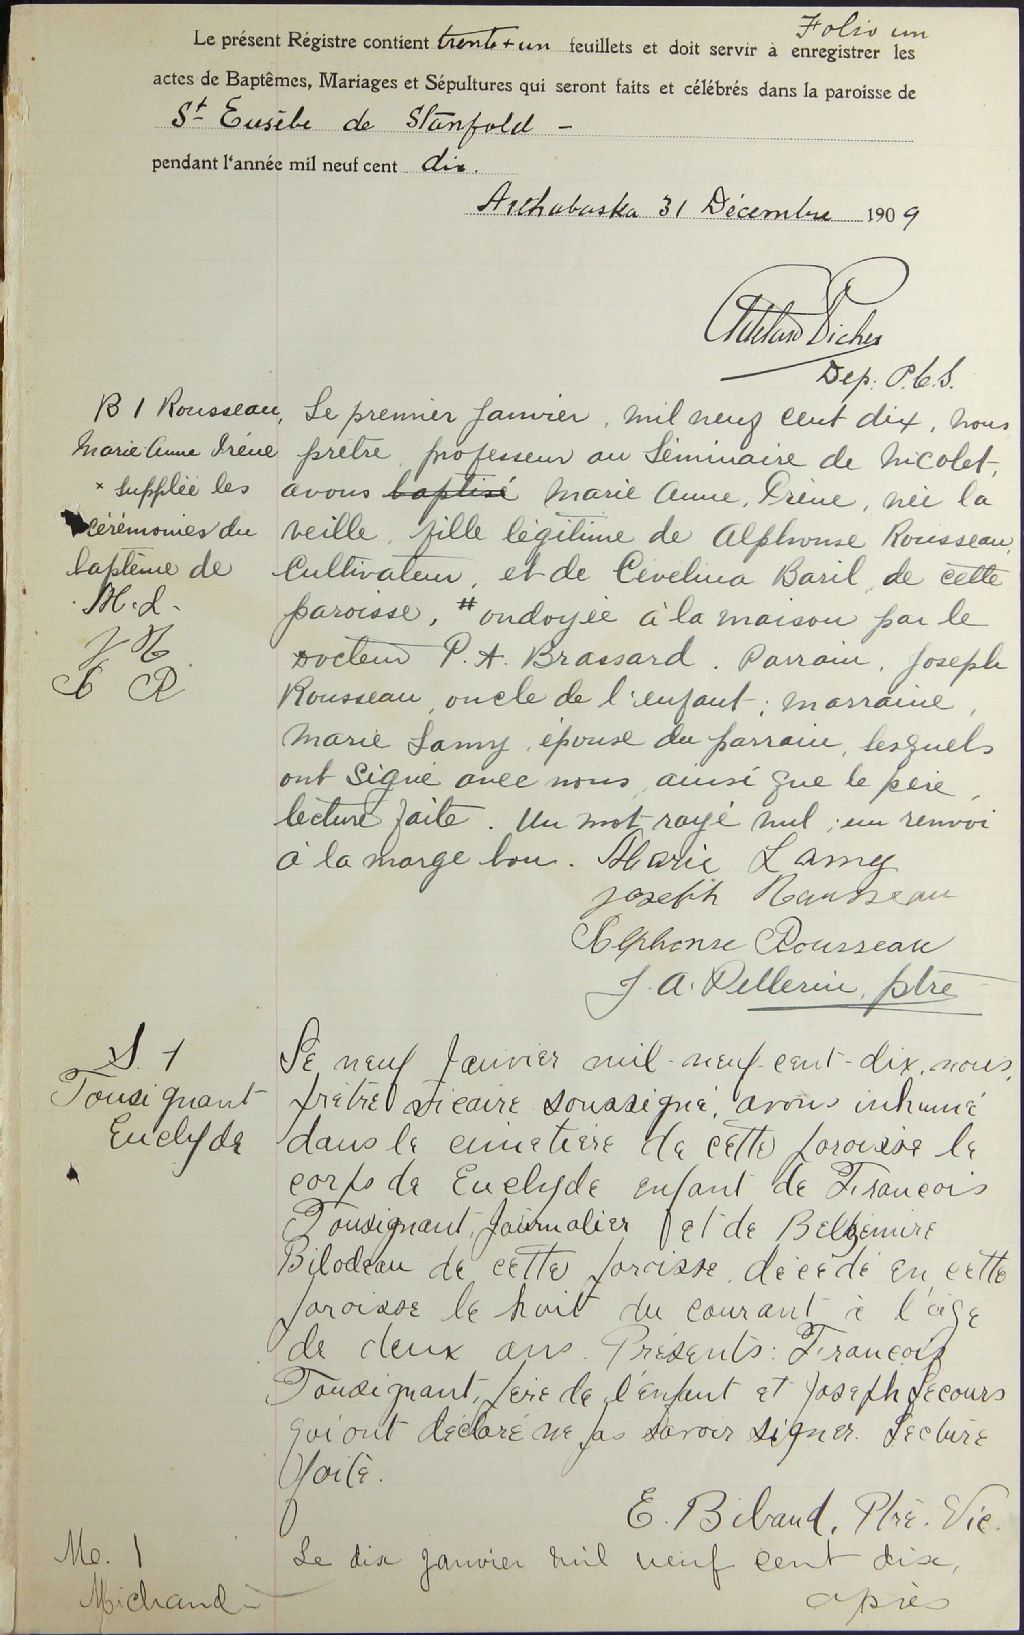 Folio un
Le présent Régistre contient trente + un feuillets et doit servir à enregistrer les
actes de Baptêmes, Mariages et Sépultures qui seront faits et célébrés dans la paroisse de
St Eusèbe de Stanfold -
pendant l'année mil neuf cent dix.
Arthabaska 31 Décembre 1909
Picher
Dep. P.C.S.
B 1 Rousseau,
Marie Anne Irène
* suppléé les
cérémonies du
baptême de
M. L.
J R
A R
Le premier janvier, mil neuf cent dix, nous
prêtre, professeur au Séminaire de Nicolet,
avons baptisé Marie Anne, Irène, née la
veille, fille légitime de Alphonse Rousseau,
cultivateur, et de Evelina Baril, de cette
paroisse, # ondoyée à la maison par le
Docteur P. A. Brassard. Parrain, Joseph
Rousseau, oncle de l'enfant; marraine,
Marie Lamy, épouse du parrain, lesquels
ont signé avec nous, ainsi que le père,
lecture faite. Un mot rayé nul; un renvoi
à la marge bon. Marie Lamy
Joseph Rousseau
Alphonse Rousseau
J. A. Pellerin, ptre
S. 1
Tousignant
Euclyde
Le neuf Janvier mil-neuf-cent-dix, nous,
prêtre vicaire soussigné, avons inhumé
dans le cimetière de cette paroisse le
corps de Euclyde enfant de François
Tousignant, Journalier et de Belzémire
Bilodeau de cette paroisse, décédé en cette
paroisse le huit du courant à l'âge
de deux ans. Présents: François
Tousignant, père de l'enfant et Joseph Lecours
qui ont déclaré ne pas savoir signer. Lecture
faite.
E. Bibaud, Ptre. Vic.
M. 1
Michaud -
Le dix janvier mil neuf cent dix,
après